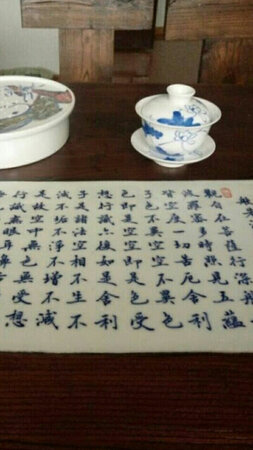 般若
觀自在菩薩行深般
波羅蜜多時照見五蘊
皆空度一切苦厄舍利
子色不異空空不異色
色即是空空即是色受
想行識亦復如是舍利
子是諸法空相不生不
滅不垢不淨不增不減
是故空中無色無受想
行識無眼耳鼻